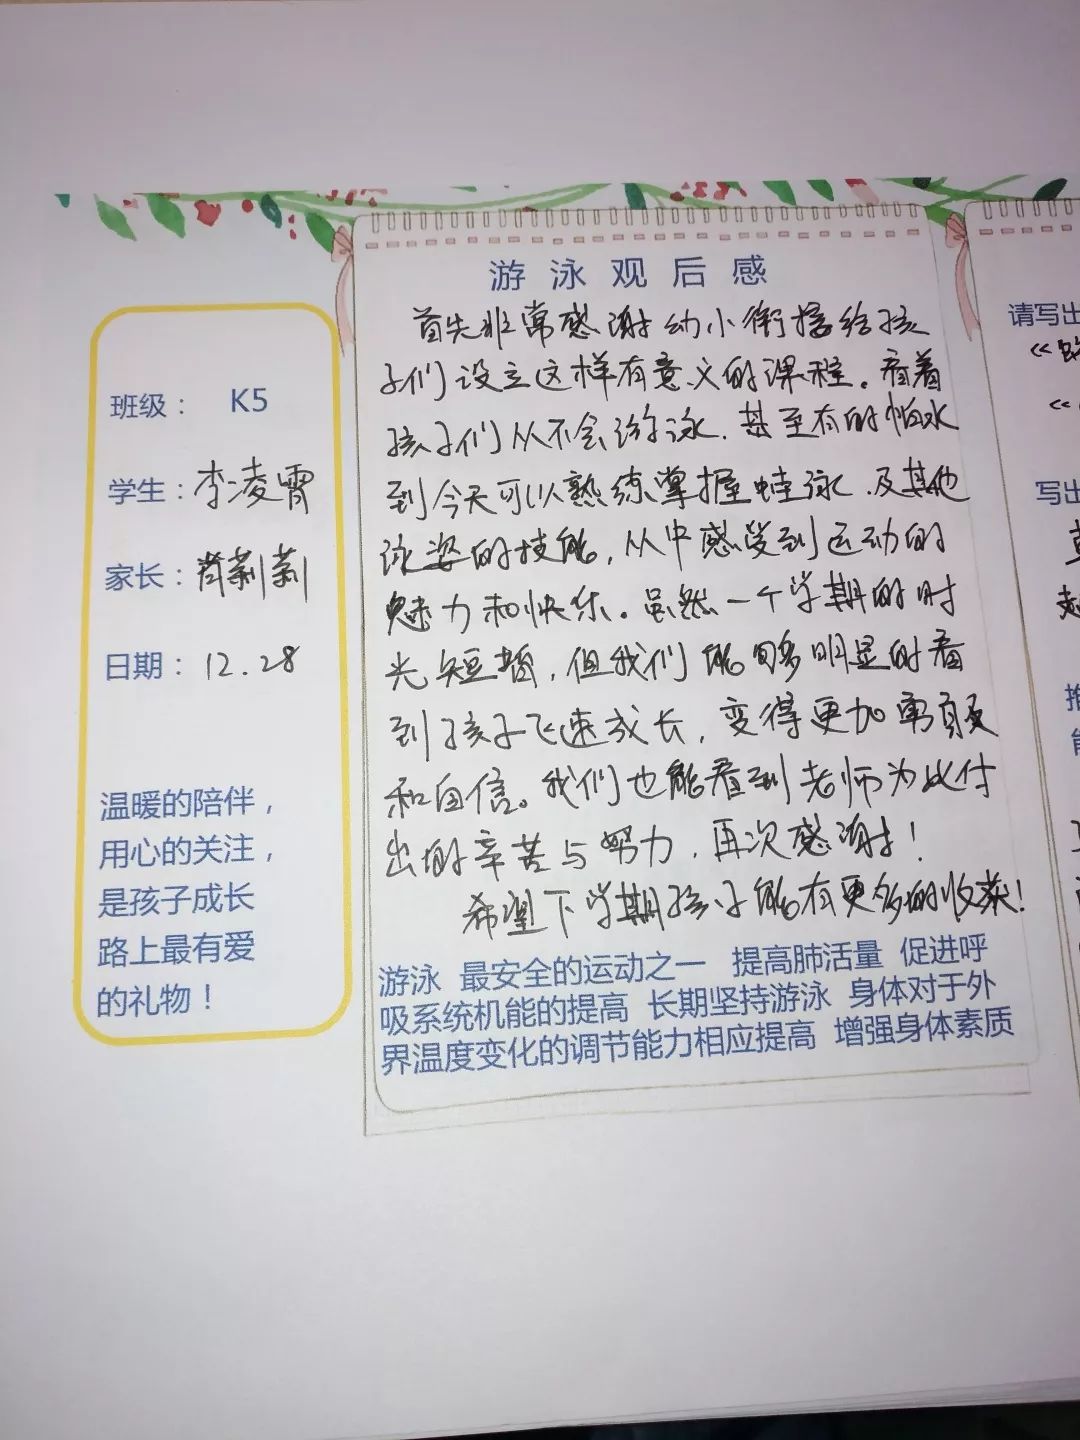 班级： K5
学生：李凌霄
家长：肖莉莉
日期：12.28
温暖的陪伴，
用心的关注，
是孩子成长
路上最有爱
的礼物！
游泳观后感
首先非常感谢幼小衔接给孩
子们设立这样有意义的课程。看着
孩子们从不会游泳，甚至有的怕水
到今天可以熟练掌握蛙泳、及其他
泳姿的技能，从中感受到运动的
魅力和快乐。虽然一个学期的时
光短暂，但我们能够明显的看
到孩子飞速成长，变得更加勇敢
和自信。我们也能看到老师为此付
出的辛苦与努力，再次感谢！
希望下学期孩子能有更多的收获！
游泳 最安全的运动之一 提高肺活量 促进呼
吸系统机能的提高 长期坚持游泳 身体对于外
界温度变化的调节能力相应提高 增强身体素质
请写出
写出